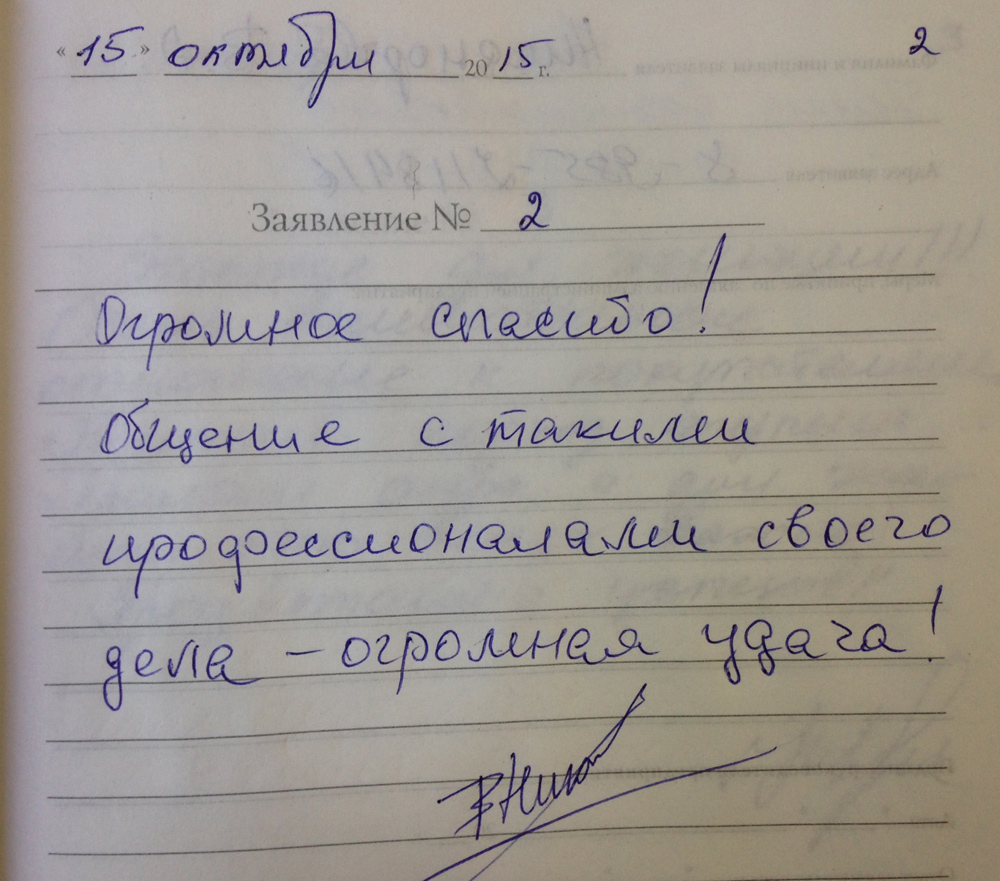 «15» октября 2015 г. 2
Заявление № 2
Огромное спасибо!
Общение с такими
профессионалами своего
дела – огромная удача!